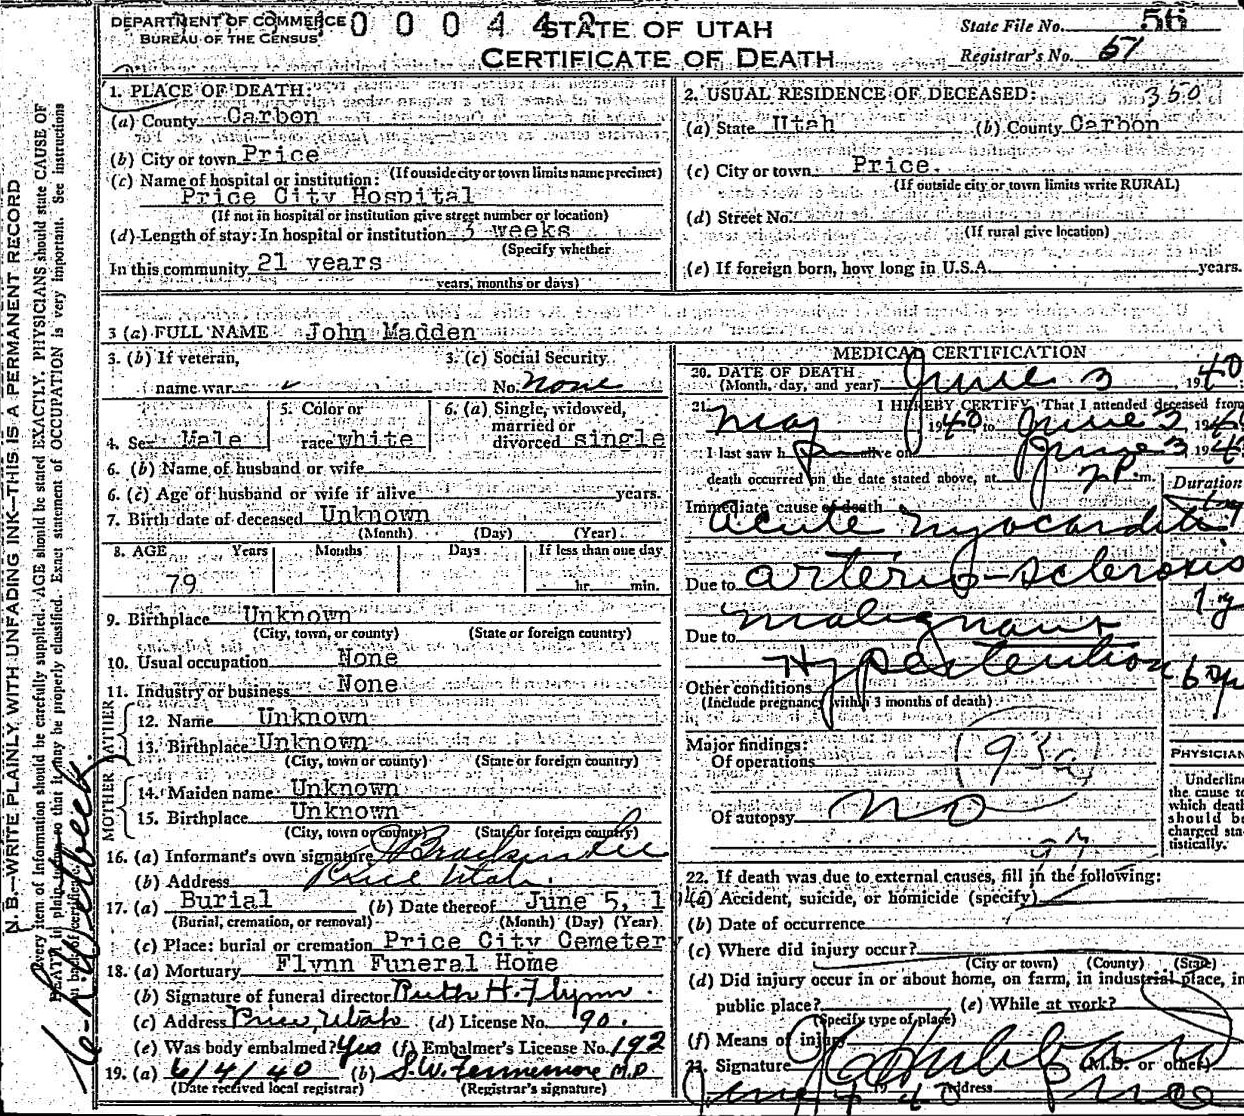 DEPARTMENT OF COMMERCE
BUREAU OF THE CENSUS
0 0 0 4 4 2
STATE OF UTAH
CERTIFICATE OF DEATH
State File No. 56
Registrar's No. 51
N. B.—WRITE PLAINLY WITH UNFADING INK—THIS IS A PERMANENT RECORD
Every item of information should be carefully supplied. AGE should be stated EXACTLY. PHYSICIANS should state CAUSE OF
DEATH in plain terms so that it may be properly classified. Exact statement of OCCUPATION is very important. See instructions
on back of certificate.
1. PLACE OF DEATH:
(a) County Carbon
(b) City or town Price
(If outside city or town limits name precinct)
(c) Name of hospital or institution:
Price City Hospital
(If not in hospital or institution give street number or location)
(d) Length of stay: In hospital or institution 3 weeks
(Specify whether
In this community 21 years
years, months or days)
2. USUAL RESIDENCE OF DECEASED: 350
(a) State Utah (b) County Carbon
(c) City or town Price.
(If outside city or town limits write RURAL)
(d) Street No.
(If rural give location)
(e) If foreign born, how long in U.S.A. years.
3 (a) FULL NAME John Madden
3. (b) If veteran,
name war
3. (c) Social Security
No. none
4. Sex Male
5. Color or
race white
6. (a) Single, widowed,
married or
divorced single
6. (b) Name of husband or wife
6. (c) Age of husband or wife if alive years.
7. Birth date of deceased Unknown
(Month) (Day) (Year)
8. AGE Years Months Days If less than one day
79 hr. min.
9. Birthplace Unknown
(City, town, or county) (State or foreign country)
10. Usual occupation None
11. Industry or business None
FATHER
12. Name Unknown
13. Birthplace Unknown
(City, town or county) (State or foreign country)
MOTHER
14. Maiden name Unknown
15. Birthplace Unknown
(City, town or county) (State or foreign country)
16. (a) Informant's own signature J Bracken Lee
(b) Address Price Utah.
17. (a) Burial (b) Date thereof June 5, 1
(Burial, cremation, or removal) (Month) (Day) (Year)
(c) Place: burial or cremation Price City Cemetery
18. (a) Mortuary Flynn Funeral Home
(b) Signature of funeral director Ruth H. Flynn.
(c) Address Price, Utah (d) License No. 90.
(e) Was body embalmed? Yes (f) Embalmer's License No. 192
19. (a) 6/4/40 (b) M.D
(Date received local registrar) (Registrar's signature)
MEDICAL CERTIFICATION
20. DATE OF DEATH
(Month, day, and year) June 3, 1940
21. I HEREBY CERTIFY, That I attended deceased from
May 1940, to June 3, 1940
I last saw h alive on June 3 1940
death occurred on the date stated above, at 7 P. m.
Duration
Immediate cause of death
acute myocarditis
Due to arterio-sclerosis
Due to malignant
Hypertention
Other conditions
(Include pregnancy within 3 months of death)
Major findings:
Of operations
93a
Of autopsy no
97
PHYSICIAN
Underline
the cause to
which death
should be
charged sta-
tistically.
22. If death was due to external causes, fill in the following:
(a) Accident, suicide, or homicide (specify)
(b) Date of occurrence
(c) Where did injury occur?
(City or town) (County) (State)
(d) Did injury occur in or about home, on farm, in industrial place, in
public place? (e) While at work?
(Specify type of place)
(f) Means of injury
23. Signature Hubbard (M.D. or other)
June 4 40 Address Price